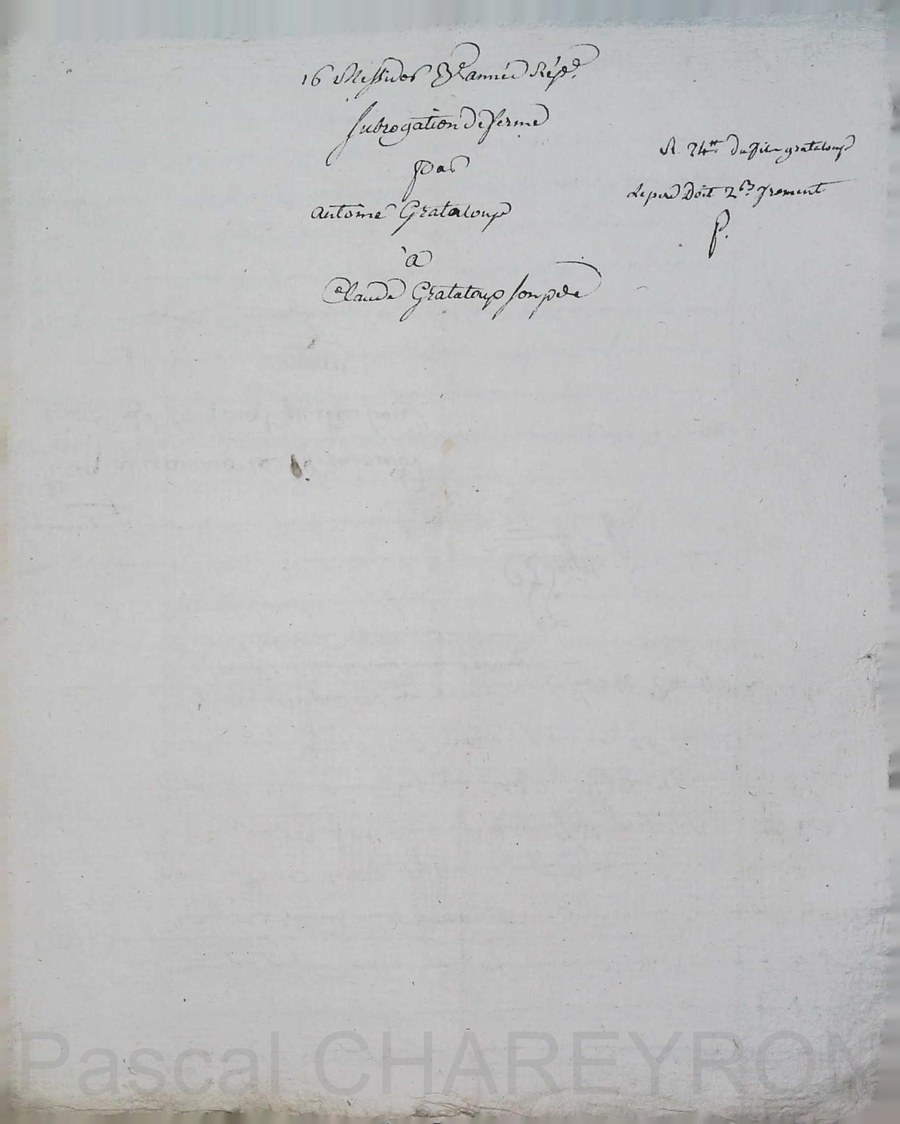 16 Messidor 3e année Répe.
Subrogation de ferme
par
antoine Grataloup
à
Claude Grataloup son père
R. 24tt du fils grataloup
Le pere Doit 2 froment
P.
Pascal CHAREYRON